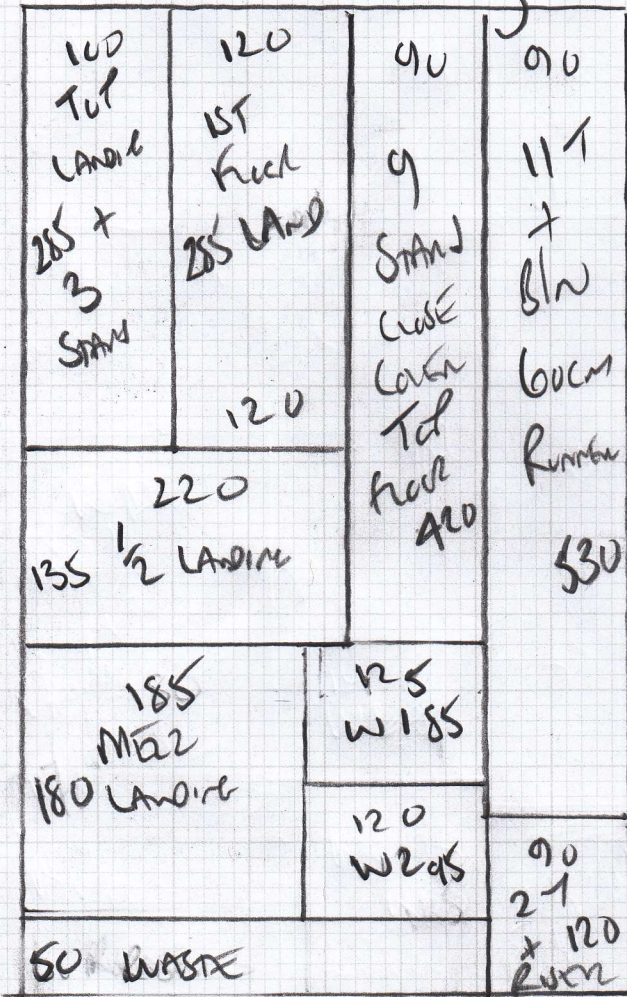 100
TOP
LANDING
285 +
3
STAIRS
120
1ST
FLOOR
285 LAND
120
90
9
STAIRS
CLOSE
COVER
TOP
FLOOR
420
90
11T
+
B/N
60CM
RUNNER
530
220
135 1/2 LANDING
185
MEZZ
180 LANDING
125
W1 85
120
W2 95
90
2T
+ 120
RISER
50 WASTE